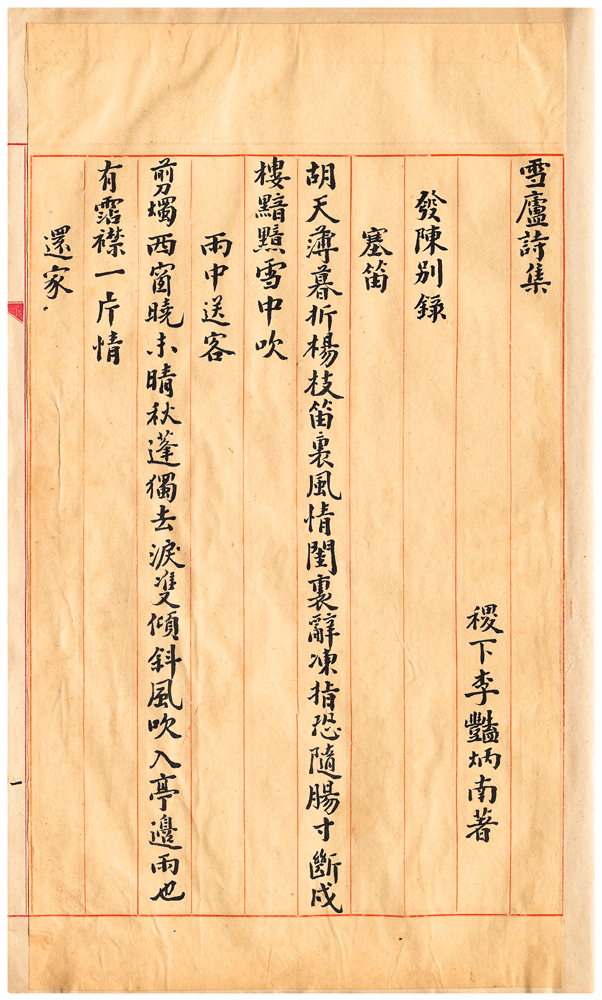 雪廬詩集
稷下李豔炳南著
發陳別錄
塞笛
胡天薄暮折楊枝笛裏風情閨裏辭凍指恐隨腸寸斷戍
樓黯黯雪中吹
雨中送客
剪燭西窗曉未晴秋蓬獨去淚雙傾斜風吹入亭邊雨也
有霑襟一片情
還家
一